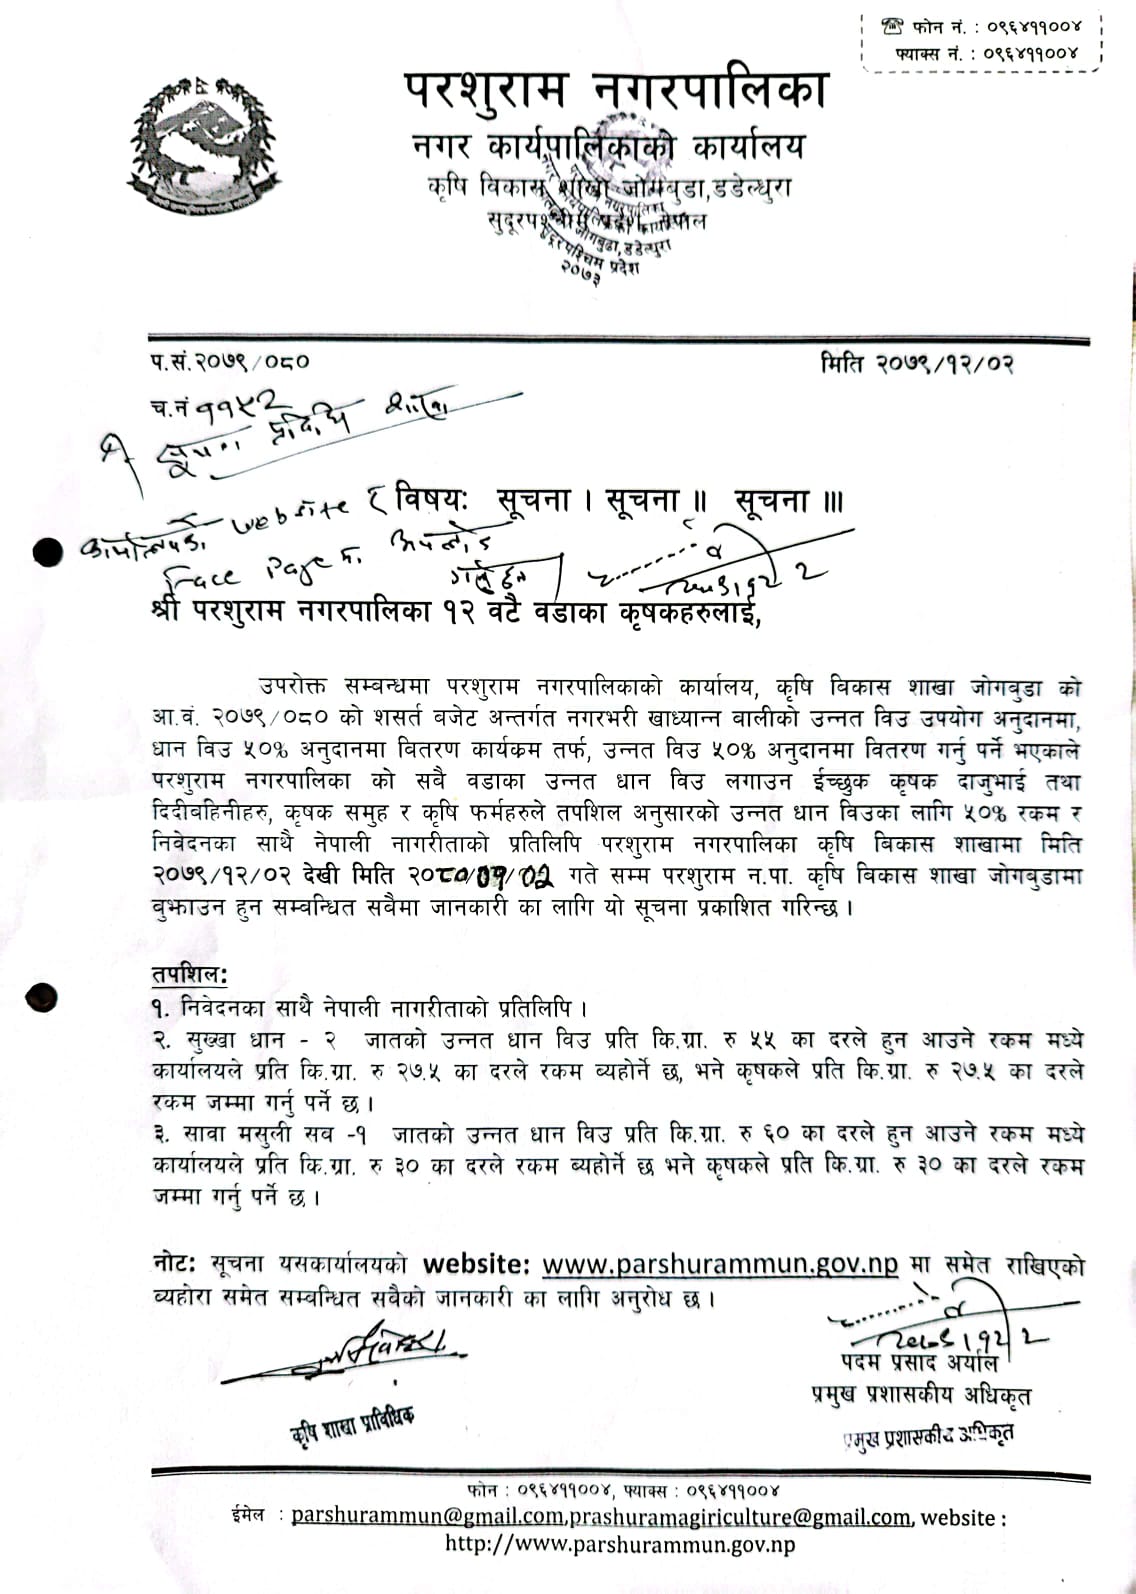 ☎ फोन नं. : ०९६४११००४
फ्याक्स नं. : ०९६४११००४
परशुराम नगरपालिका
नगर कार्यपालिकाको कार्यालय
कृषि विकास शाखा जोगबुडा,डडेल्धुरा
सुदूरपश्चिम प्रदेश, नेपाल
जोगबुढा,डडेल्धुरा
सुदूरपश्चिम प्रदेश
२०७३
प.सं.२०७९/०८०
मिति २०७९/१२/०२
च.नं ११५२
श्री सूचना प्रविधि शाखा
कार्यालयको website र
Face Page मा अपलोड
गर्नु हुन
विषयः सूचना । सूचना ॥ सूचना ॥।
२०७९।१२।२
श्री परशुराम नगरपालिका १२ वटै वडाका कृषकहरुलाई,
उपरोक्त सम्बन्धमा परशुराम नगरपालिकाको कार्यालय, कृषि विकास शाखा जोगबुडा को
आ.वं. २०७९/०८० को शसर्त बजेट अन्तर्गत नगरभरी खाध्यान्न वालीको उन्नत विउ उपयोग अनुदानमा,
धान विउ ५०% अनुदानमा वितरण कार्यक्रम तर्फ, उन्नत विउ ५०% अनुदानमा वितरण गर्नु पर्ने भएकाले
परशुराम नगरपालिका को सवै वडाका उन्नत धान विउ लगाउन ईच्छुक कृषक दाजुभाई तथा
दिदीवहिनीहरु, कृषक समुह र कृषि फर्महरुले तपशिल अनुसारको उन्नत धान विउका लागि ५०% रकम र
निवेदनका साथै नेपाली नागरीताको प्रतिलिपि परशुराम नगरपालिका कृषि बिकास शाखामा मिति
२०७९/१२/०२ देखी मिति २०८०/०१/०२ गते सम्म परशुराम न.पा. कृषि विकास शाखा जोगबुडामा
वुझाउन हुन सम्बन्धित सबैमा जानकारी का लागि यो सूचना प्रकाशित गरिन्छ ।
तपशिल:
१. निवेदनका साथै नेपाली नागरीताको प्रतिलिपि ।
२. सुख्खा धान - २ जातको उन्नत धान विउ प्रति कि.ग्रा. रु ५५ का दरले हुन आउने रकम मध्ये
कार्यालयले प्रति कि.ग्रा. रु २७.५ का दरले रकम ब्यहोर्ने छ, भने कृषकले प्रति कि.ग्रा. रु २७.५ का दरले
रकम जम्मा गर्नु पर्ने छ ।
३. सावा मसुली सव -१ जातको उन्नत धान विउ प्रति कि.ग्रा. रु ६० का दरले हुन आउने रकम मध्ये
कार्यालयले प्रति कि.ग्रा. रु ३० का दरले रकम ब्यहोर्ने छ भने कृषकले प्रति कि.ग्रा. रु ३० का दरले रकम
जम्मा गर्नु पर्ने छ ।
नोट: सूचना यसकार्यालयको website: www.parshurammun.gov.np मा समेत राखिएको
व्यहोरा समेत सम्बन्धित सबैको जानकारी का लागि अनुरोध छ ।
२०७९।१२।२
पदम प्रसाद अर्याल
प्रमुख प्रशासकीय अधिकृत
कृषि शाखा प्राविधिक
प्रमुख प्रशासकीय अधिकृत
फोन : ०९६४११००४, फ्याक्स : ०९६४११००४
ईमेल : parshurammun@gmail.com,prashuramagiriculture@gmail.com, website :
http://www.parshurammun.gov.np